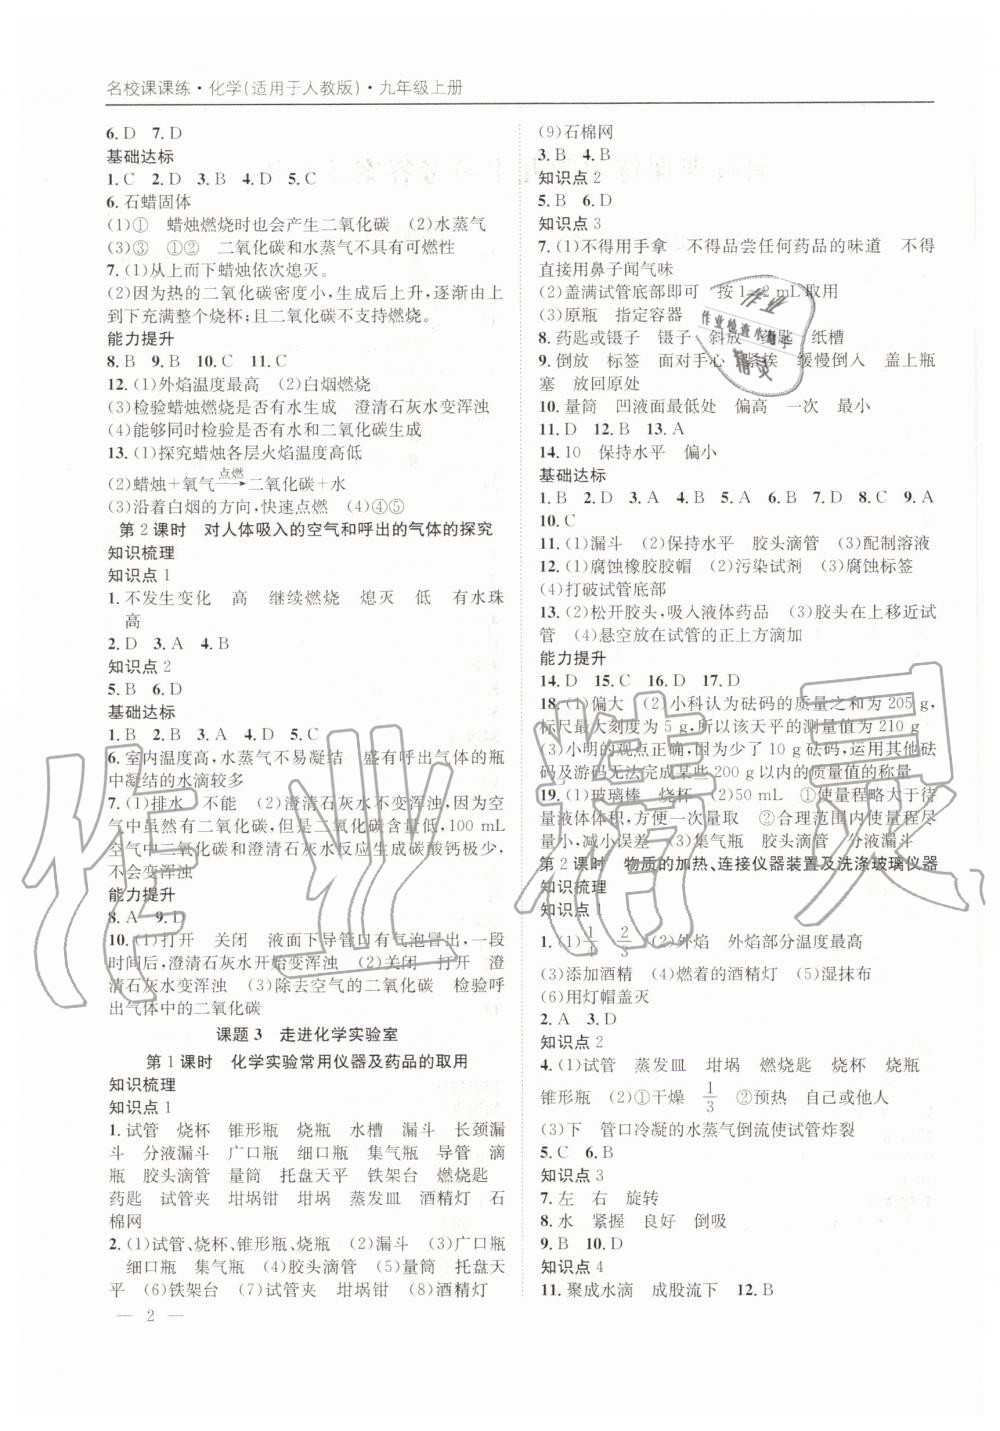 名校课课练·化学(适用于人教版)·九年级上册
6. D  7. D
基础达标
1. C  2. D  3. B  4. D  5. C
6. 石蜡固体
(1)①  蜡烛燃烧时也会产生二氧化碳  (2)水蒸气
(3)③  ①②  二氧化碳和水蒸气不具有可燃性
7. (1)从上而下蜡烛依次熄灭。
(2)因为热的二氧化碳密度小,生成后上升,逐渐由上
到下充满整个烧杯;且二氧化碳不支持燃烧。
能力提升
8. B  9. B  10. C  11. C
12. (1)外焰温度最高  (2)白烟燃烧
(3)检验蜡烛燃烧是否有水生成  澄清石灰水变浑浊
(4)能够同时检验是否有水和二氧化碳生成
13. (1)探究蜡烛各层火焰温度高低
(2)蜡烛+氧气 点燃→ 二氧化碳+水
(3)沿着白烟的方向,快速点燃  (4)④⑤
第 2 课时  对人体吸入的空气和呼出的气体的探究
知识梳理
知识点 1
1. 不发生变化  高  继续燃烧  熄灭  低  有水珠
高
2. D  3. A  4. B
知识点 2
5. B  6. D
基础达标
1. B  2. B  3. A  4. D  5. D
6. 室内温度高,水蒸气不易凝结  盛有呼出气体的瓶
中凝结的水滴较多
7. (1)排水  不能  (2)澄清石灰水不变浑浊,因为空
气中虽然有二氧化碳,但是二氧化碳含量低,100 mL
空气中二氧化碳和澄清石灰水反应生成碳酸钙极少,
不会变浑浊
能力提升
8. A  9. D
10. (1)打开  关闭  液面下导管口有气泡冒出,一段
时间后,澄清石灰水开始变浑浊  (2)关闭  打开  澄
清石灰水变浑浊  (3)除去空气的二氧化碳  检验呼
出气体中的二氧化碳
课题 3  走进化学实验室
第 1 课时  化学实验常用仪器及药品的取用
知识梳理
知识点 1
1. 试管  烧杯  锥形瓶  烧瓶  水槽  漏斗  长颈漏
斗  分液漏斗  广口瓶  细口瓶  集气瓶  导管  滴
瓶  胶头滴管  量筒  托盘天平  铁架台  燃烧匙
药匙  试管夹  坩埚钳  坩埚  蒸发皿  酒精灯  石
棉网
2. (1)试管、烧杯、锥形瓶、烧瓶  (2)漏斗  (3)广口瓶
细口瓶  集气瓶  (4)胶头滴管  (5)量筒  托盘天
平  (6)铁架台  (7)试管夹  坩埚钳  (8)酒精灯
(9)石棉网
3. B  4. B
知识点 2
5. B  6. D
知识点 3
7. (1)不得用手拿  不得品尝任何药品的味道  不得
直接用鼻子闻气味
(2)盖满试管底部即可  按 1~2 mL 取用
(3)原瓶  指定容器
8. 药匙或镊子  镊子  斜放  药匙  纸槽
9. 倒放  标签  面对手心  紧挨  缓慢倒入  盖上瓶
塞  放回原处
10. 量筒  凹液面最低处  偏高  一次  最小
11. D  12. B  13. A
14. 10  保持水平  偏小
基础达标
1. B  2. D  3. A  4. B  5. A  6. B  7. D  8. C  9. A
10. C
11. (1)漏斗  (2)保持水平  胶头滴管  (3)配制溶液
12. (1)腐蚀橡胶胶帽  (2)污染试剂  (3)腐蚀标签
(4)打破试管底部
13. (2)松开胶头,吸入液体药品  (3)胶头在上移近试
管  (4)悬空放在试管的正上方滴加
能力提升
14. D  15. C  16. D  17. D
18. (1)偏大  (2)小科认为砝码的质量之和为 205 g,
标尺最大刻度为 5 g,所以该天平的测量值为 210 g
(3)小明的观点正确,因为少了 10 g 砝码,运用其他砝
码及游码无法完成某些 200 g 以内的质量值的称量
19. (1)玻璃棒  烧杯  (2)50 mL  ①使量程略大于待
量液体体积,方便一次量取  ②合理范围内使量程尽
量小,减小误差  (3)集气瓶  胶头滴管  分液漏斗
第 2 课时  物质的加热、连接仪器装置及洗涤玻璃仪器
知识梳理
知识点 1
1. (1)1/4  2/3  (2)外焰  外焰部分温度最高
(3)添加酒精  (4)燃着的酒精灯  (5)湿抹布
(6)用灯帽盖灭
2. A  3. D
知识点 2
4. (1)试管  蒸发皿  坩埚  燃烧匙  烧杯  烧瓶
锥形瓶  (2)①干燥  1/3  ②预热  自己或他人
(3)下  管口冷凝的水蒸气倒流使试管炸裂
5. C  6. B
知识点 3
7. 左  右  旋转
8. 水  紧握  良好  倒吸
9. B  10. D
知识点 4
11. 聚成水滴  成股流下  12. B
— 2 —
作业
作业检查小帮手
精灵
作业精灵